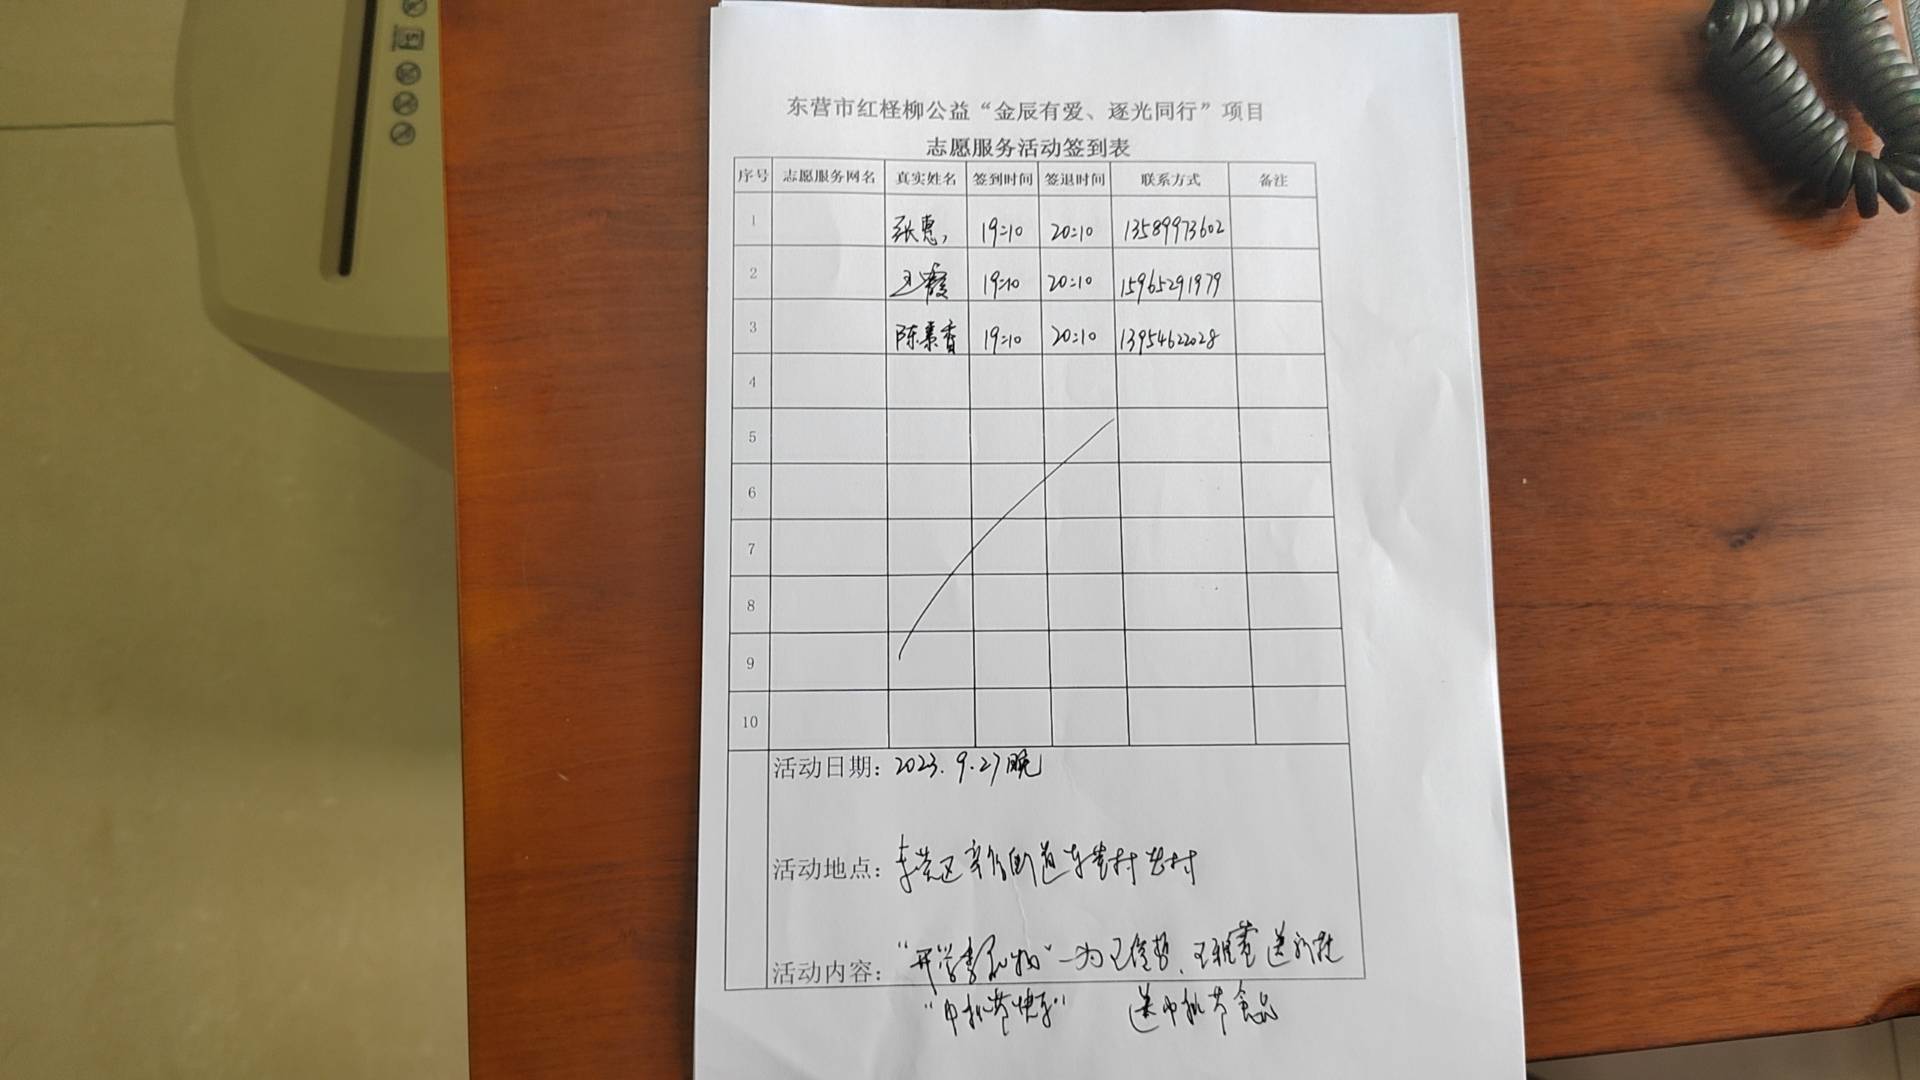 东营市红柽柳公益“金辰有爱、逐光同行”项目
志愿服务活动签到表
序号 志愿服务网名 真实姓名 签到时间 签退时间 联系方式 备注
1 张惠 19:10 20:10 13589973602
2 王霞 19:10 20:10 15965291979
3 陈素香 19:10 20:10 13954622028
4
5
6
7
8
9
10
活动日期：2023.9.27晚
活动地点：东营区 街道 村
活动内容：“开学季礼物”—为王 、王雅 送
“中秋节快乐” 送中秋节食品